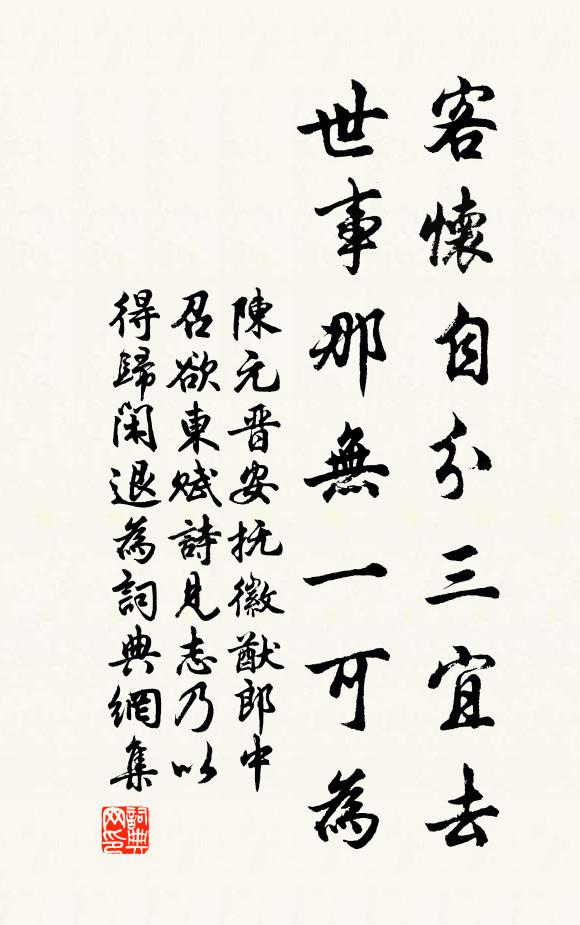 客懷自分三宜去
世事那無一可為
陳元晋安抚徽猷郎中
召欲東赋詩見志乃以
得歸閑退為詞典網集
詞典网印